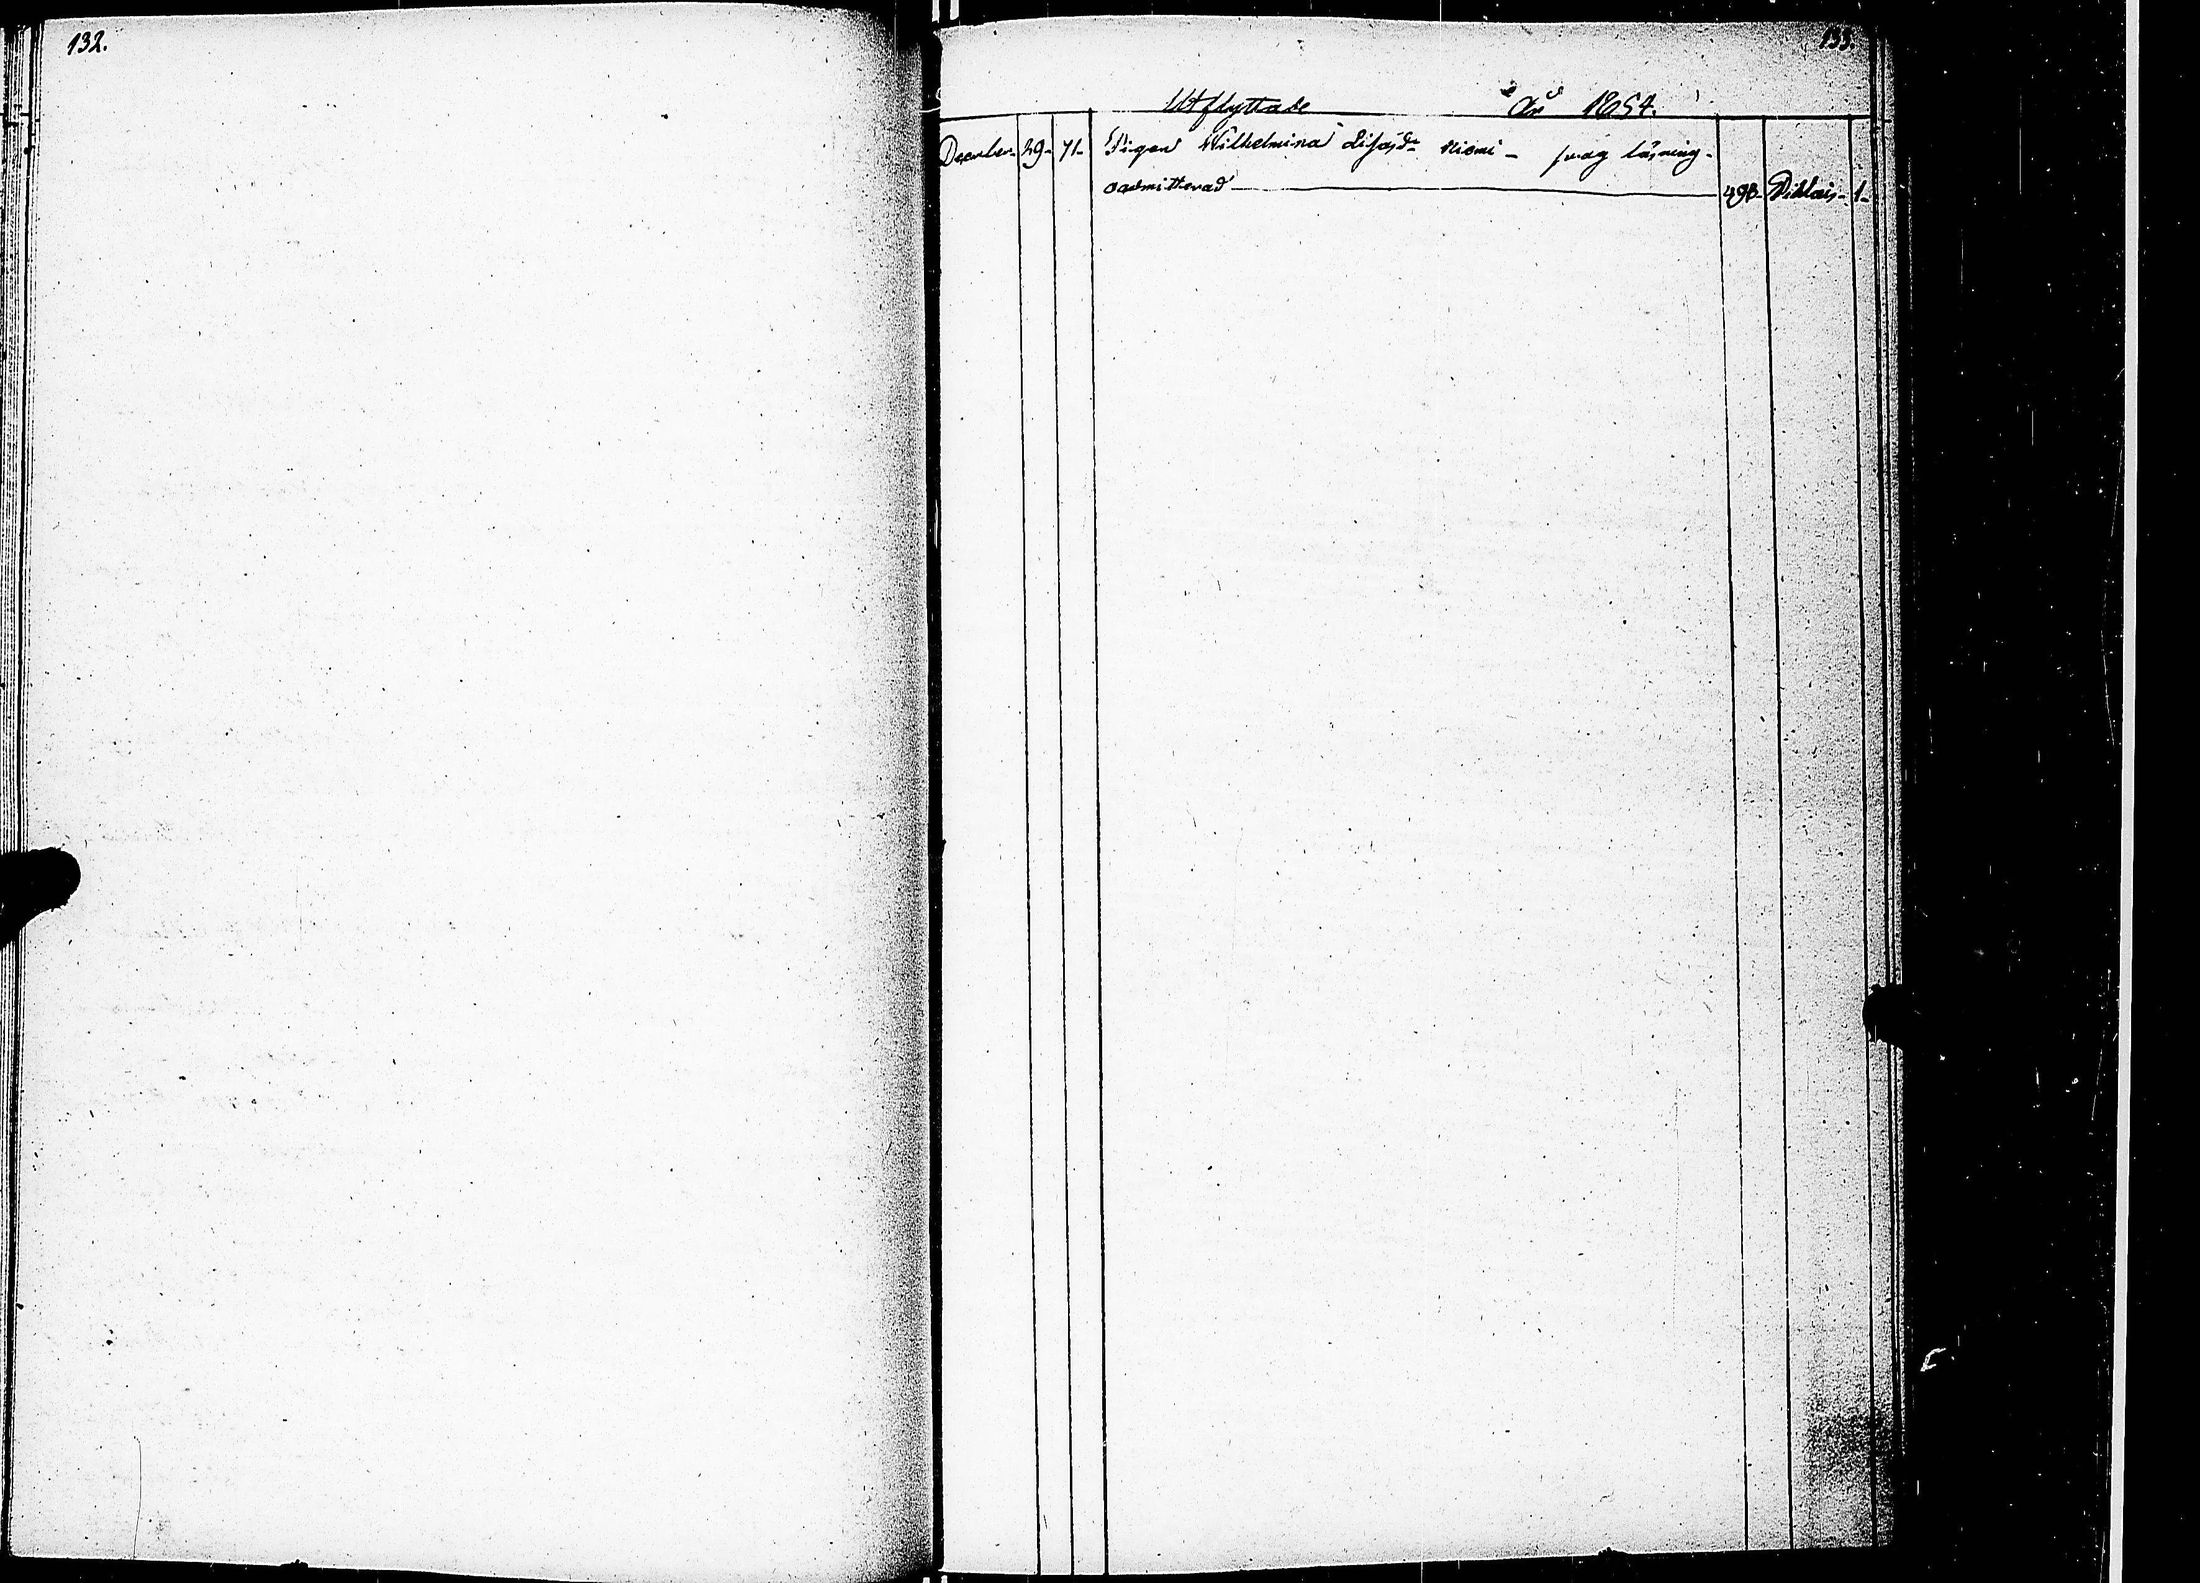 132.
133.
Utflyttade År 1854.
December 29 71 Pigan Wilhelmina Lisasdr Niemi - svag läsning -
oadmitterad 498